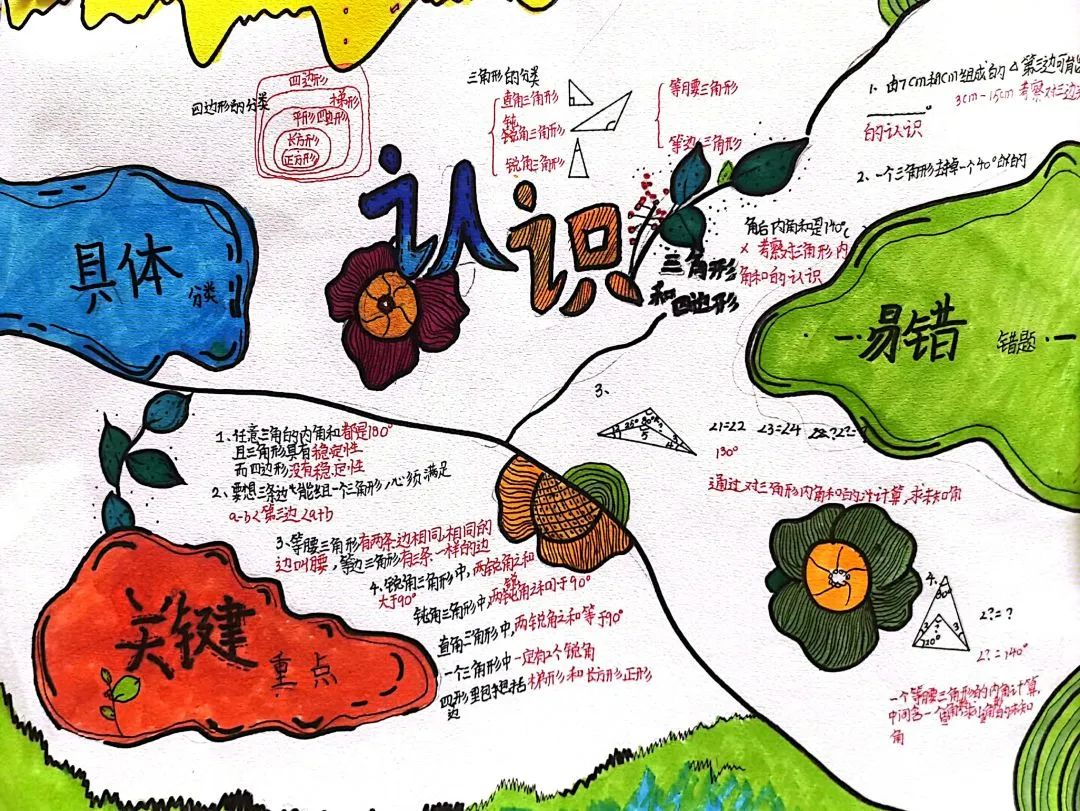 四边形的分类
四边形
梯形
平形四边形
长方形
正方形
三角形的分类
直角三角形
钝
锐角三角形
锐角三角形
等腰三角形
等边三角形
认识
三角形
和四边形
具体
分类
1、由7cm和8cm组成的△第三边可能
3cm-15cm 考察对三边关
的认识
2、一个三角形去掉一个40°的
角后内角和是140°
× 考察对三角形内
角和的认识
易错
错题
3、
∠1=∠2 ∠3=∠4 ∠?=?
130°
通过对三角形内角和的计算,求未知角
1、任意三角的内角和都是180°
且三角形具有稳定性
而四边形没有稳定性
2、要想三条边能组一个三角形,必须满足
a-b<第三边<a+b
3、等腰三角形有两条边相同,相同的
边叫腰,等边三角形有三条一样的边
4、锐角三角形中,两锐角之和
大于90°
钝角三角形中,两锐角之和小于90°
直角三角形中,两锐角之和等于90°
一个三角形中一定有2个锐角
四边形里包括 梯形 和 长方形,正形
关键
重点
4、
∠?=?
∠?=140°
一个等腰三角形的内角计算,
中间含一个
角